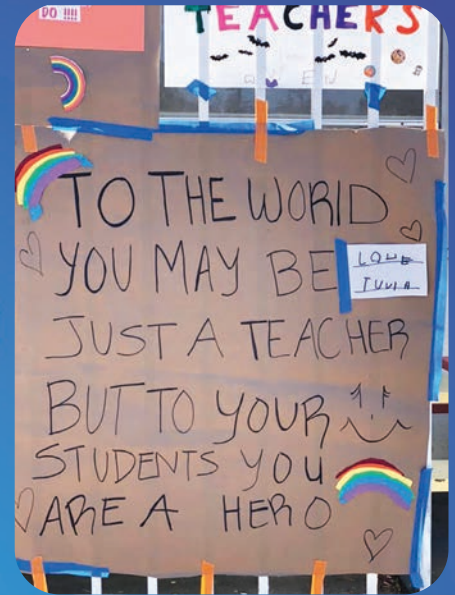 DO !!!!
TEACHERS
TO THE WORLD
YOU MAY BE
LOVE
JUST A TEACHER
BUT TO YOUR
STUDENTS YOU
ARE A HERO